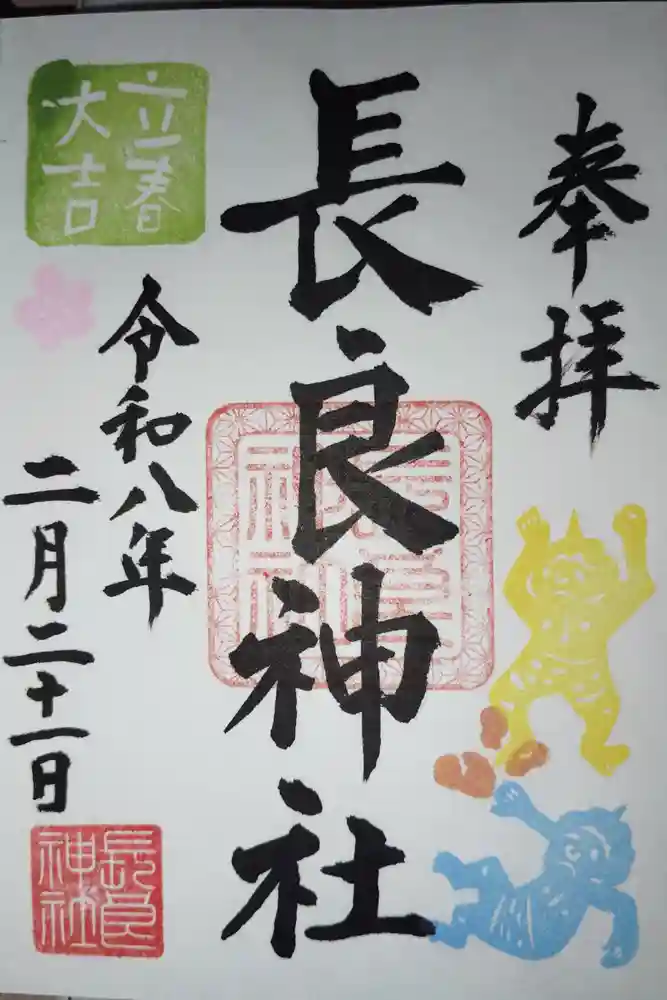 奉拝
長良神社
立春
大吉
令和八年
二月二十一日
長良
神社